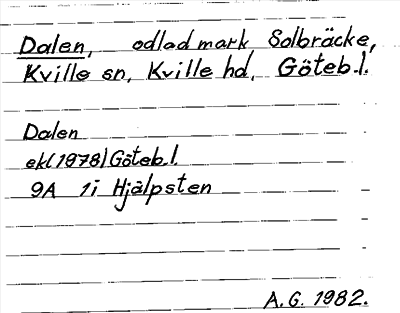 Dalen, odlad mark, Solbräcke,
Kville sn, Kville hd, Göteb.l.
Dalen
ek(1978)Göteb.l
9A 1i Hjälpsten
A.G. 1982.